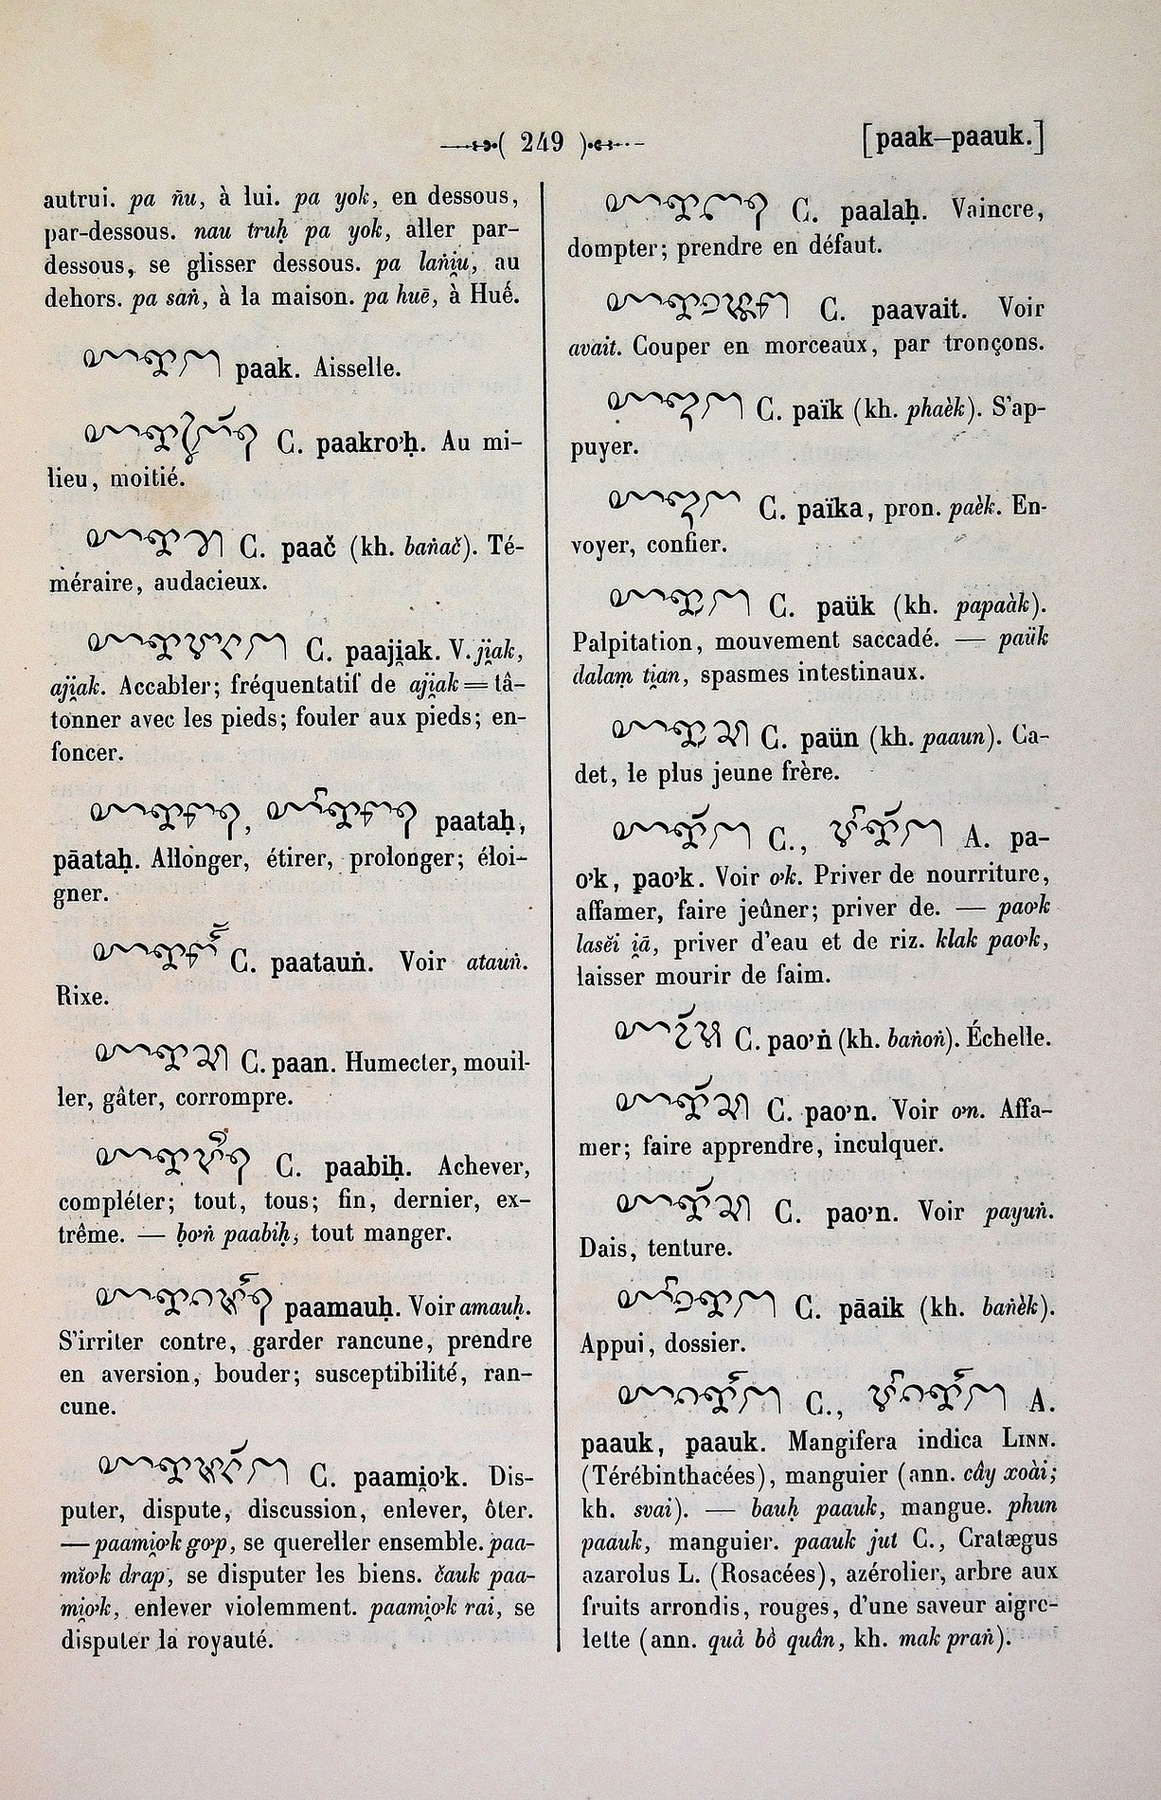 ( 249 )
[paak–paauk.]
autrui. pa ñu, à lui. pa yok, en dessous,
par-dessous. nau truḥ pa yok, aller par-
dessous, se glisser dessous. pa lañi̯u, au
dehors. pa sañ, à la maison. pa huē, à Hué.
paak. Aisselle.
C. paakro’ḥ. Au mi-
lieu, moitié.
C. paač (kh. bañač). Té-
méraire, audacieux.
C. paaji̯ak. V. ji̯ak,
aji̯ak. Accabler; fréquentatif de aji̯ak = tâ-
tonner avec les pieds; fouler aux pieds; en-
foncer.
, paataḥ,
pāataḥ. Allonger, étirer, prolonger; éloi-
gner.
C. paatauṅ. Voir atauṅ.
Rixe.
C. paan. Humecter, mouil-
ler, gâter, corrompre.
C. paabiḥ. Achever,
compléter; tout, tous; fin, dernier, ex-
trême. — ḅo’ṅ paabiḥ, tout manger.
paamauḥ. Voir amauḥ.
S’irriter contre, garder rancune, prendre
en aversion, bouder; susceptibilité, ran-
cune.
C. paami̯o’k. Dis-
puter, dispute, discussion, enlever, ôter.
— paami̯o’k go’p, se quereller ensemble. paa-
mi̯o’k drap, se disputer les biens. čauk paa-
mi̯o’k, enlever violemment. paami̯o’k rai, se
disputer la royauté.
C. paalaḥ. Vaincre,
dompter; prendre en défaut.
C. paavait. Voir
avait. Couper en morceaux, par tronçons.
C. païk (kh. phaèk). S’ap-
puyer.
C. païka, pron. paèk. En-
voyer, confier.
C. paük (kh. papaàk).
Palpitation, mouvement saccadé. — paük
dalaṃ ti̯an, spasmes intestinaux.
C. paün (kh. paaun). Ca-
det, le plus jeune frère.
C., A. pa-
o’k, pao’k. Voir o’k. Priver de nourriture,
affamer, faire jeûner; priver de. — pao’k
lasĕi i̯ā, priver d’eau et de riz. klak pao’k,
laisser mourir de faim.
C. pao’ṅ (kh. bañoṅ). Échelle.
C. pao’n. Voir o’n. Affa-
mer; faire apprendre, inculquer.
C. pao’n. Voir payuṅ.
Dais, tenture.
C. pāaik (kh. bañèk).
Appui, dossier.
C., A.
paauk, paauk. Mangifera indica LINN.
(Térébinthacées), manguier (ann. cây xoài;
kh. svai). — bauḥ paauk, mangue. phun
paauk, manguier. paauk jut C., Cratægus
azarolus L. (Rosacées), azérolier, arbre aux
fruits arrondis, rouges, d’une saveur aigre-
lette (ann. quả bồ quân, kh. mak praṅ).